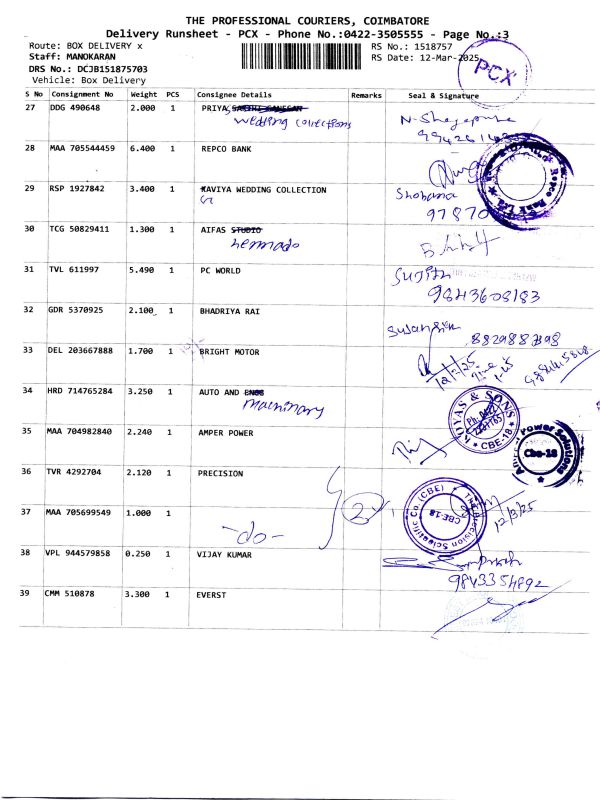 THE PROFESSIONAL COURIERS, COIMBATORE
Delivery Runsheet - PCX - Phone No.:0422-3505555 - Page No.:3
Route: BOX DELIVERY x
RS No.: 1518757
Staff: MANOKARAN
RS Date: 12-Mar-2025
PCX
DRS No.: DCJB151875703
Vehicle: Box Delivery
S No Consignment No Weight PCS Consignee Details Remarks Seal & Signature
27 DDG 490648 2.000 1 PRIYA
wedding collections
28 MAA 705544459 6.400 1 REPCO BANK
Repco Bank Ltd
29 RSP 1927842 3.400 1 KAVIYA WEDDING COLLECTION
Shobana
97870
30 TCG 50829411 1.300 1 AIFAS STUDIO
31 TVL 611997 5.490 1 PC WORLD
Sujith
9843608183
32 GDR 5370925 2.100 1 BHADRIYA RAI
33 DEL 203667888 1.700 1 BRIGHT MOTOR
12/3/25
34 HRD 714765284 3.250 1 AUTO AND
machinary
KOYAS & SONS
CBE-18
35 MAA 704982840 2.240 1 AMPER POWER
Amper Power Solutions
Cbe-18
36 TVR 4292704 2.120 1 PRECISION
The Precision Scientific Co. (CBE)
CBE-18
37 MAA 705699549 1.000 1
-do-
2
12/3/25
38 VPL 944579858 0.250 1 VIJAY KUMAR
39 CMM 510878 3.300 1 EVERST